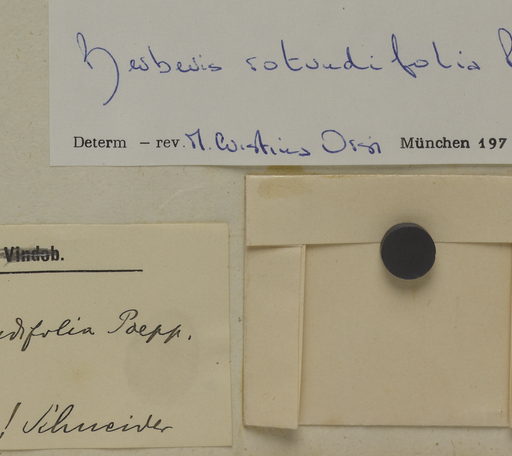 Berberis rotundifolia P
Determ – rev. M. Cristina Orsi München 197
Vindob.
difolia Poepp.
! Schneider